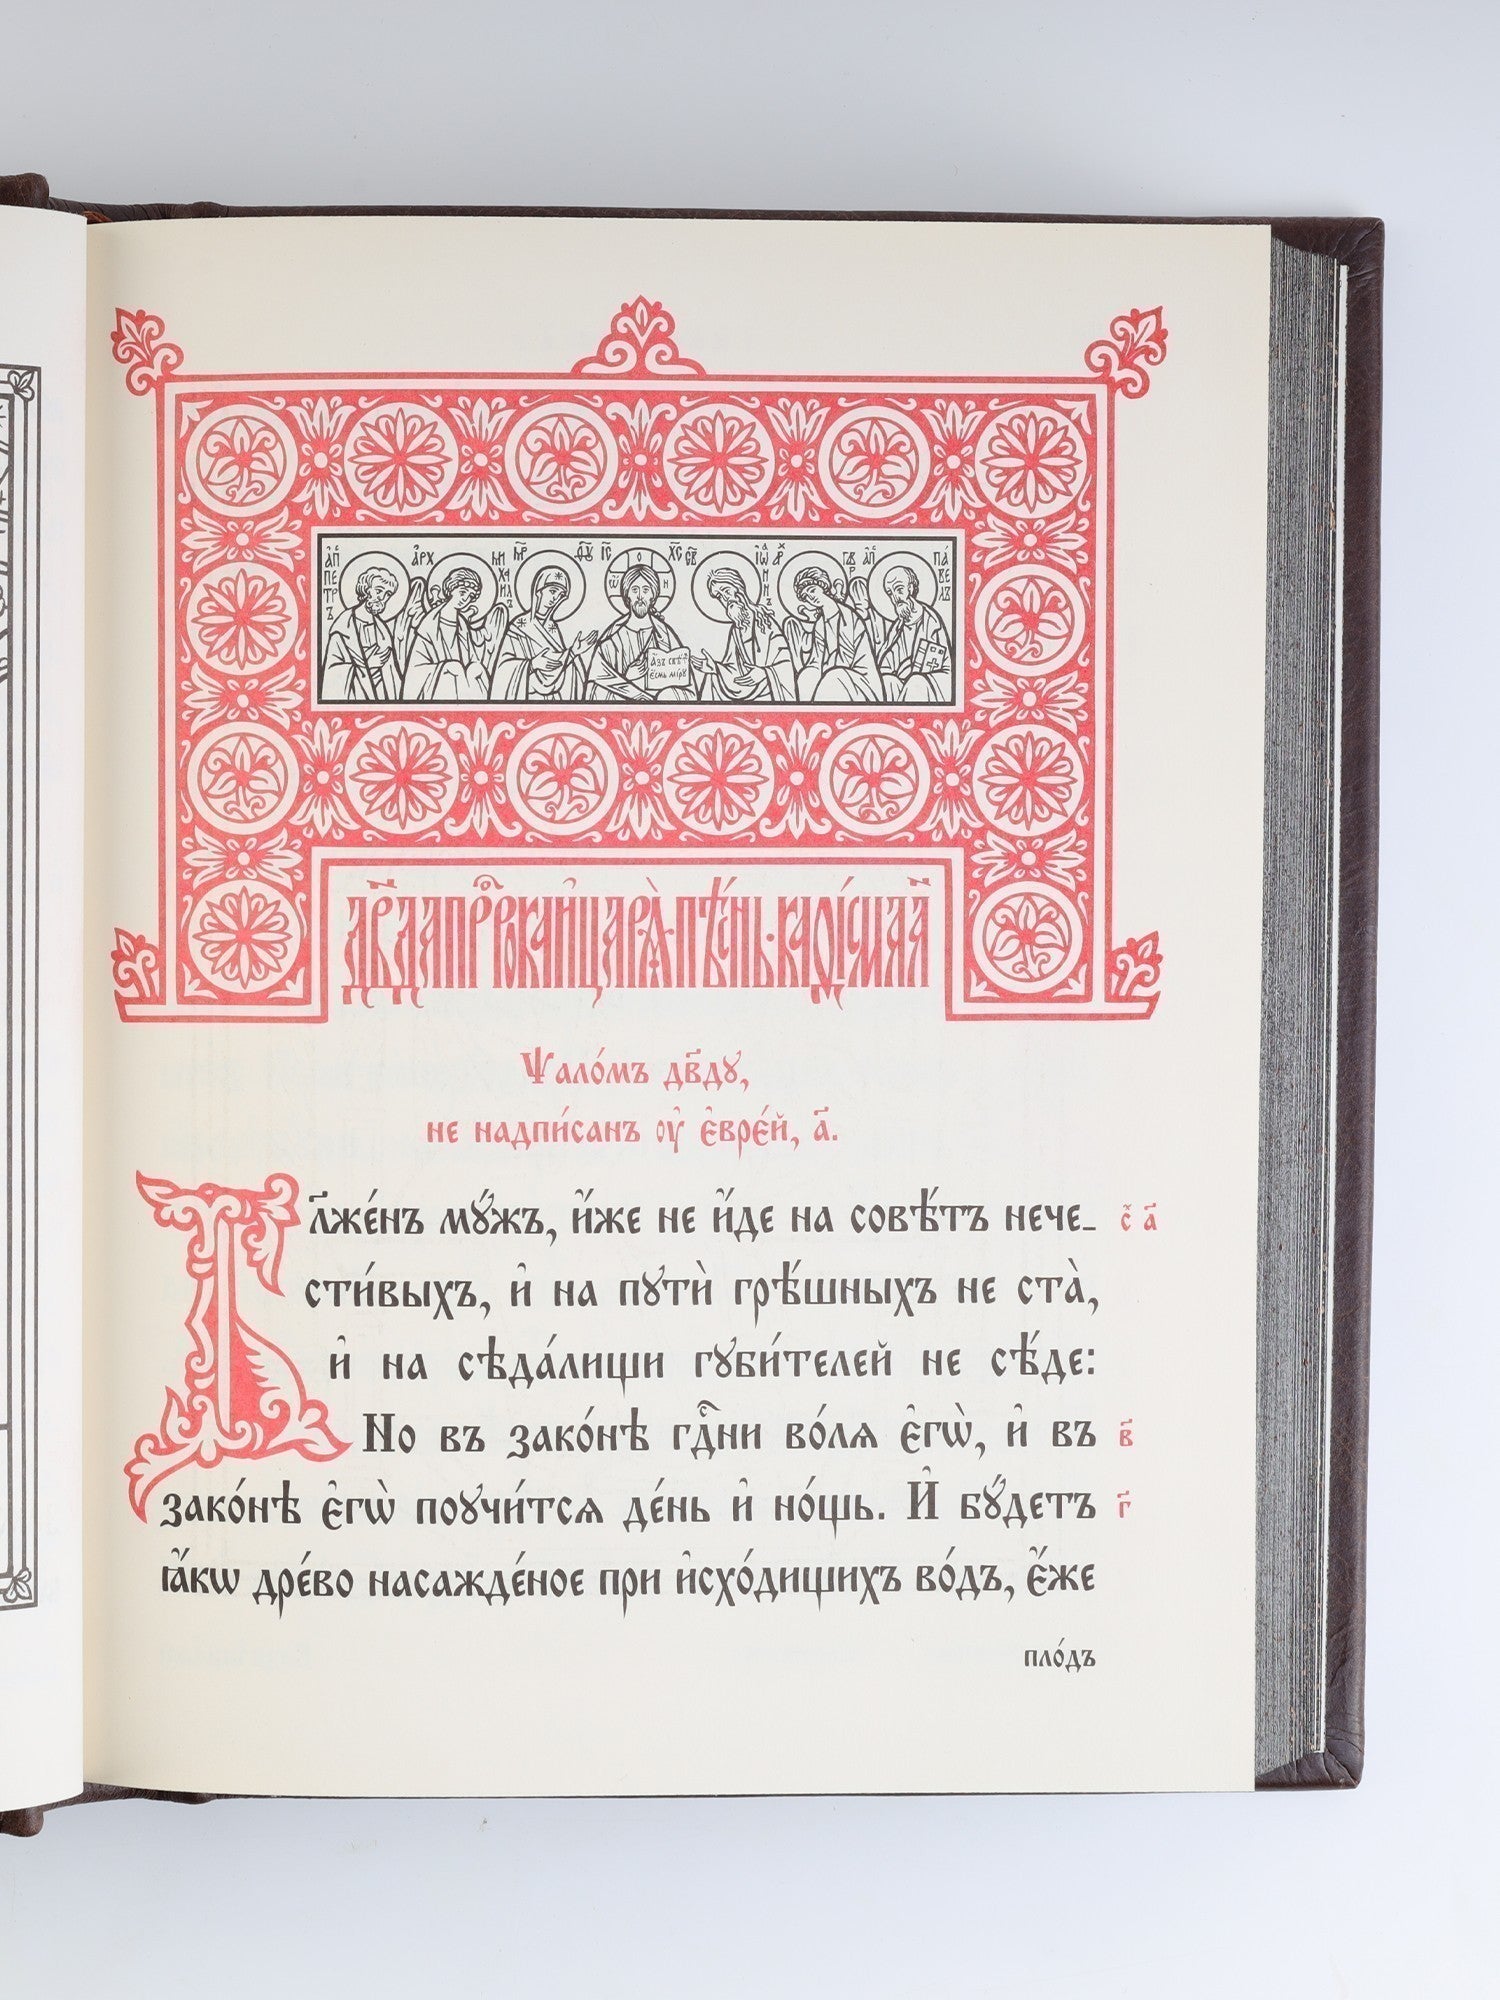 а҆пⷭ҇ ПЕТРЪ а҆рх МИХАИЛЪ м҃р ѳ҃ꙋ і҃с х҃с ѡ҆ о н ст҃ І҆ѠАННЪ а҆рх ГАВР а҆пⷭ҇ ПАВЕЛЪ
А҆́зъ свѣ́тъ
є҆́смь мі́рꙋ
Дв҃да прⷪ҇рока и҆ царѧ̀ пѣ́снь · каѳі́сма а҃
Ѱало́мъ дв҃дꙋ,
не надпи́санъ ѹ҆ є҆врє́й, а҃.
Бл҃же́нъ мꙋ́жъ, и҆́же не и҆́де на совѣ́тъ нече-
сти́выхъ, и҆ на пꙋтѝ грѣ́шныхъ не ста̀,
и҆ на сѣда́лищи гꙋби́телей не сѣ́де:
Но въ зако́нѣ гдⷭ҇ни во́лѧ є҆гѡ̀, и҆ въ
зако́нѣ є҆гѡ̀ поꙋчи́тсѧ де́нь и҆ но́щь. И҆ бꙋ́детъ
ꙗ҆́кѡ дре́во насажде́ное при и҆схо́дищихъ во́дъ, є҆́же
с҃ а҃
в҃
г҃
пло́дъ